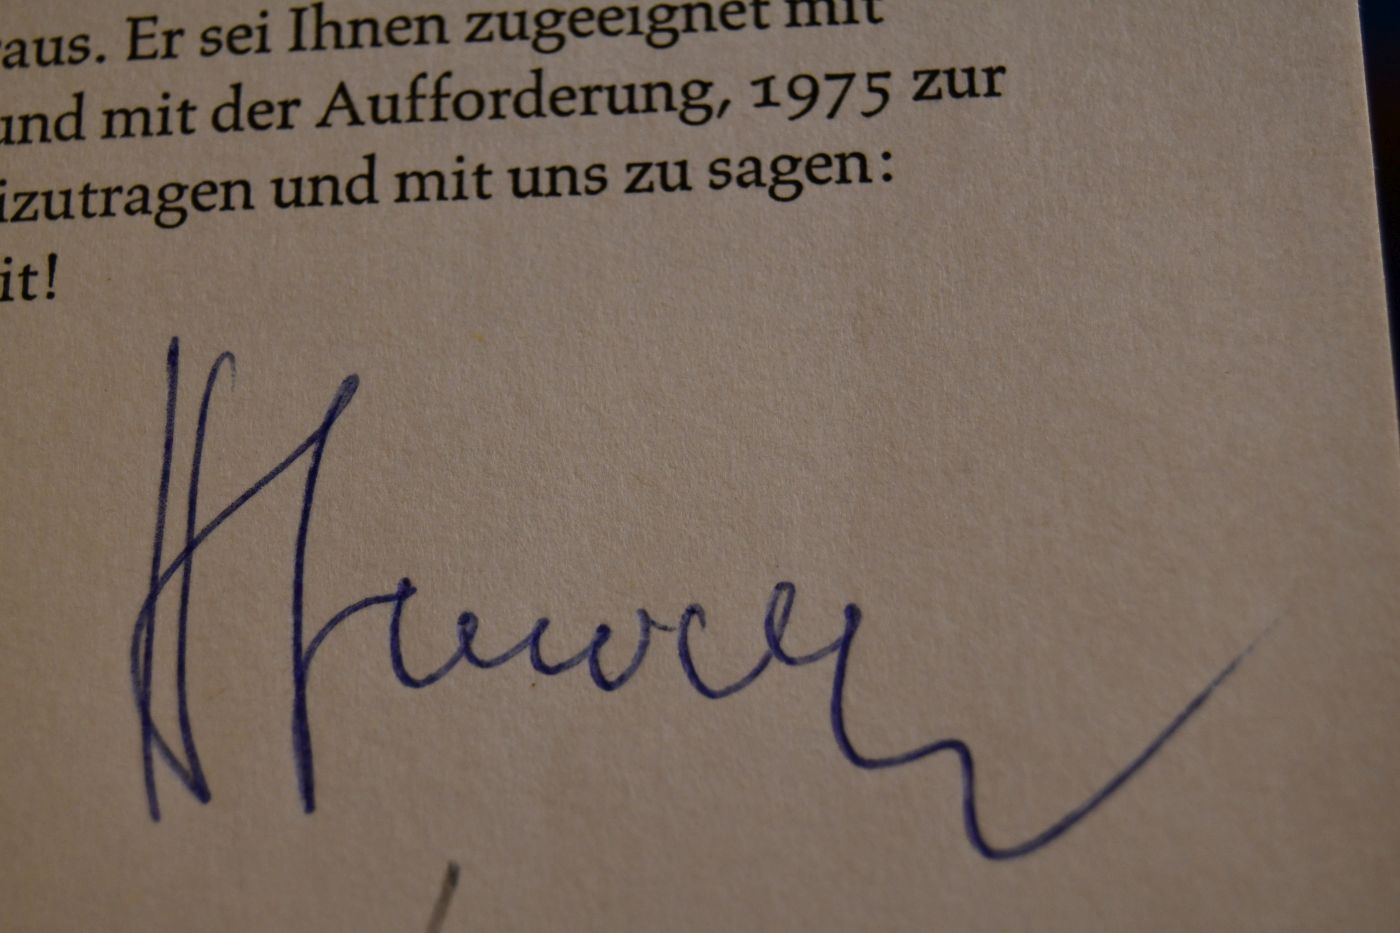 aus. Er sei Ihnen zugeeignet mit
und mit der Aufforderung, 1975 zur
izutragen und mit uns zu sagen:
it!